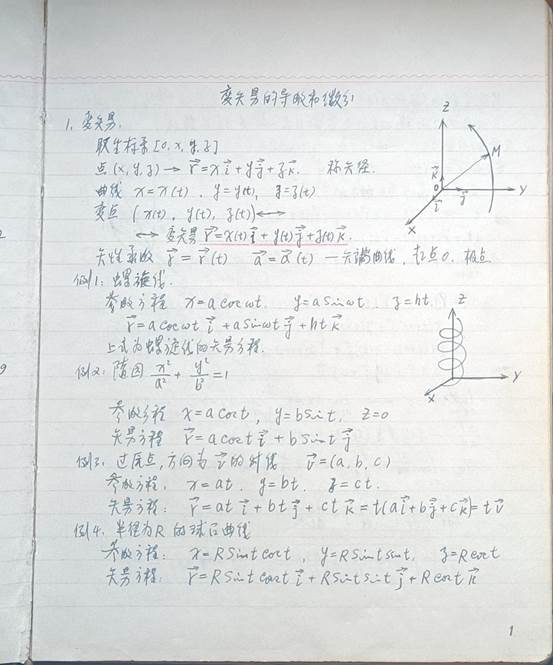 变矢量的导数和微分
1. 变矢量.
取坐标系 [0, x, y, z]
点(x, y, z) → r⃗ = x i⃗ + y j⃗ + z k⃗. 称矢径.
曲线 x = x(t). y = y(t), z = z(t)
变点 (x(t), y(t), z(t)) ⟷
⟷ 变矢量 r⃗ = x(t) i⃗ + y(t) j⃗ + z(t) k⃗.
矢性函数 r⃗ = r⃗(t) a⃗ = a⃗(t) 一矢端曲线, 起点0. 极点
例1: 螺旋线.
参数方程 x = a cos ωt. y = a sin ωt. z = ht.
r⃗ = a cos ωt i⃗ + a sin ωt j⃗ + ht k⃗
上式为螺旋线的矢量方程.
例2: 随园 x²/a² + y²/b² = 1
参数方程 x = a cos t, y = b sin t, z = 0
矢量方程 r⃗ = a cos t i⃗ + b sin t j⃗
例3. 过原点, 方向为 v⃗ 的射线 v⃗ = (a, b, c)
参数方程. x = at. y = bt. z = ct.
矢量方程: r⃗ = at i⃗ + bt j⃗ + ct k⃗ = t(a i⃗ + b j⃗ + c k⃗) = t v⃗
例4. 半径为 R 的球面曲线
参数方程: x = R sin t cos t, y = R sin t sin t, z = R cos t
矢量方程: r⃗ = R sin t cos t i⃗ + R sin t sin t j⃗ + R cos t k⃗
Z
M
k⃗
0
i⃗
j⃗
Y
X
Z
Y
X
1